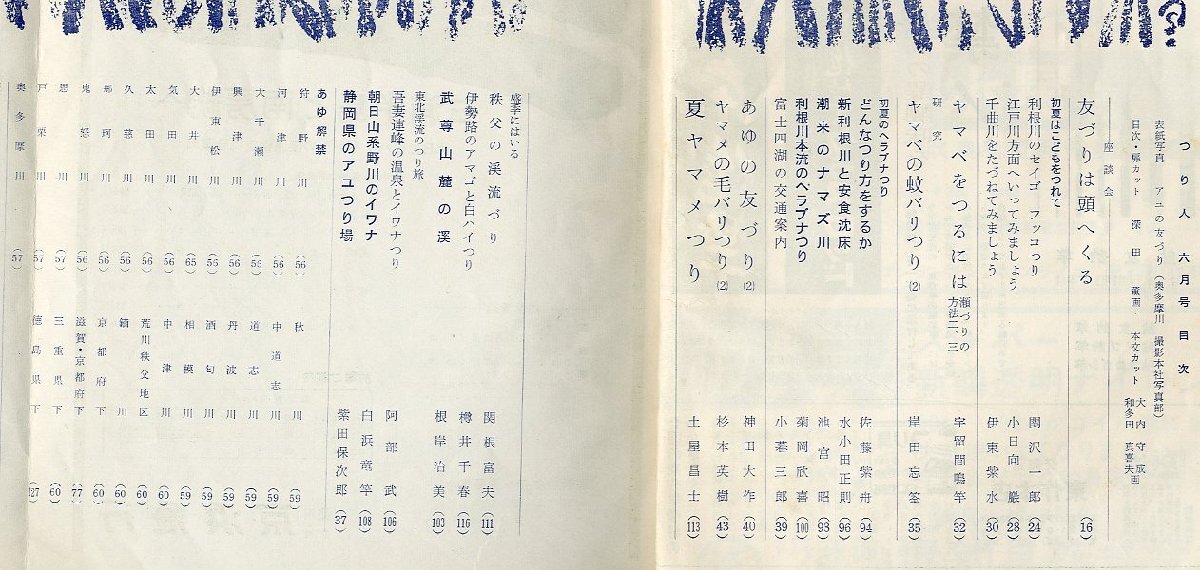 つり人 六月号 目次
表紙写真 アユの友づり(奥多摩川 撮影本社写真部)
目次・扉カット 深田
本文カット 大内守成画
和多田
座談会
友づりは頭へくる (16)
初夏はこどもをつれて
利根川のセイゴ フッコつり 関沢一郎 (24)
江戸川方面へいってみましょう 小日向 巌 (28)
千曲川をたづねてみましょう 伊東紫水 (30)
ヤマベをつるには 瀬づりの方法二、三 宇留間鳴竿 (32)
研究
ヤマベの蚊バリつり(2) 岸田忘筌 (35)
初夏のヘラブナつり
どんなつり方をするか 佐藤紫舟 (94)
新利根川と安食沈床 水小田正則 (96)
潮来のナマズ川 池宮 昭 (93)
利根川本流のヘラブナつり 菊岡欣喜 (100)
富士四湖の交通案内 小暮三郎 (39)
あゆの友づり(2) 神田大作 (40)
ヤマメの毛バリつり(2) 杉本英樹 (43)
夏ヤマメつり 土屋昌士 (113)
盛季にはいる
秩父の渓流づり 関根富夫 (111)
伊勢路のアマゴと白ハイつり 樽井千春 (116)
武尊山麓の渓 根岸治美 (103)
東北渓流のつり旅
吾妻連峰の温泉とイワナつり 阿部 武 (106)
朝日山系野川のイワナ 白浜竜竿 (108)
静岡県のアユつり場 紫田保次郎 (37)
あゆ解禁
狩野川 (56)
河津川 (56)
大千瀬川
興津川 (56)
伊東松川 (56)
大井川 (65)
気田川 (56)
太田川 (56)
久慈川 (56)
那珂川 (56)
鬼怒川 (56)
(57)
(57)
奥多摩川 (57)
秋川 (59)
中道志川 (59)
道志川 (59)
丹波川 (59)
酒匂川 (59)
相模川 (59)
中津川 (60)
荒川秩父地区 (60)
川 (60)
京都府下 (60)
滋賀・京都府下 (77)
三重県下 (60)
徳島県下 (27)